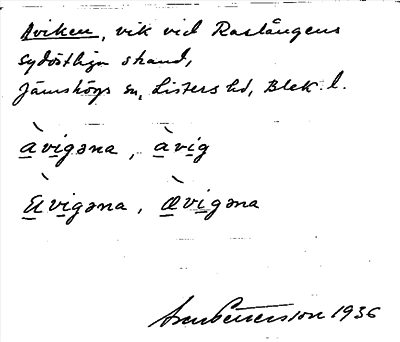 Åviken, vik vid Raslångens
sydöstliga strand,
Jämshögs sn, Listers hd, Blek. l.
àvigəna, àvig
vigəna, ævigəna
1936